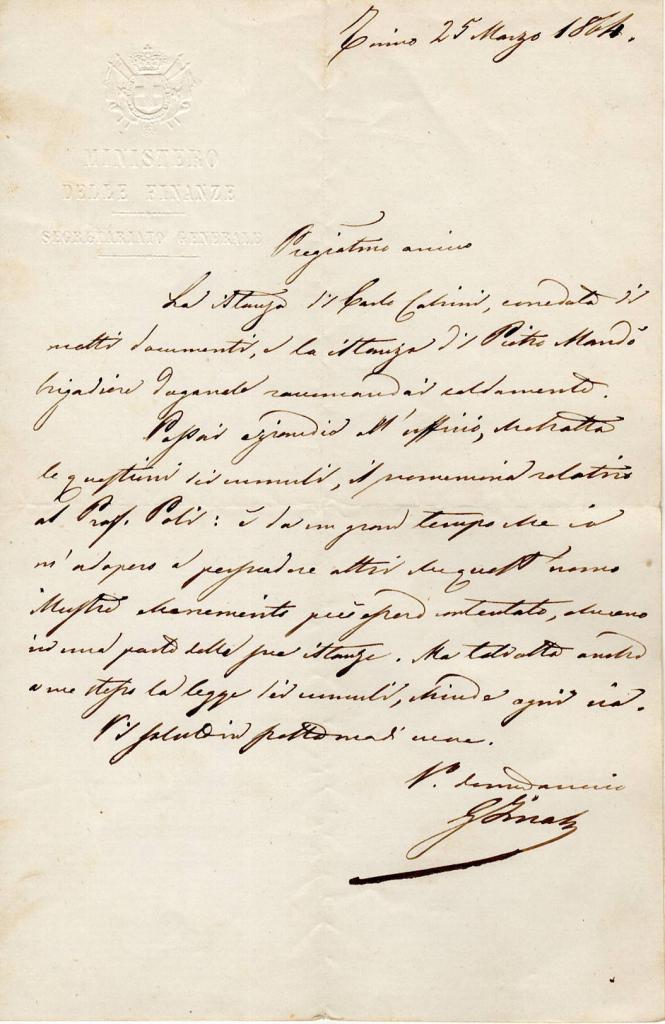 Torino 25 Marzo 1864.
MINISTERO
DELLE FINANZE
SEGRETARIATO GENERALE
Pregiatmo amico
La istanza di Carlo Cabrini, corredata di
molti documenti, e la istanza di Pietro Mandò
brigadiere doganale raccomandai caldamente.
Passai all'uffizio, che tratta
le questioni dei cumuli, il promemoria relativo
al Prof. Poli: è da un gran tempo che io
m'adopero a persuadere altri che quest'uomo
illustre essere contentato, almeno
in una parte delle sue istanze. Ma talvolta anche
a me stesso la legge dei cumuli, chiude ogni via.
Vi saluto in
V.